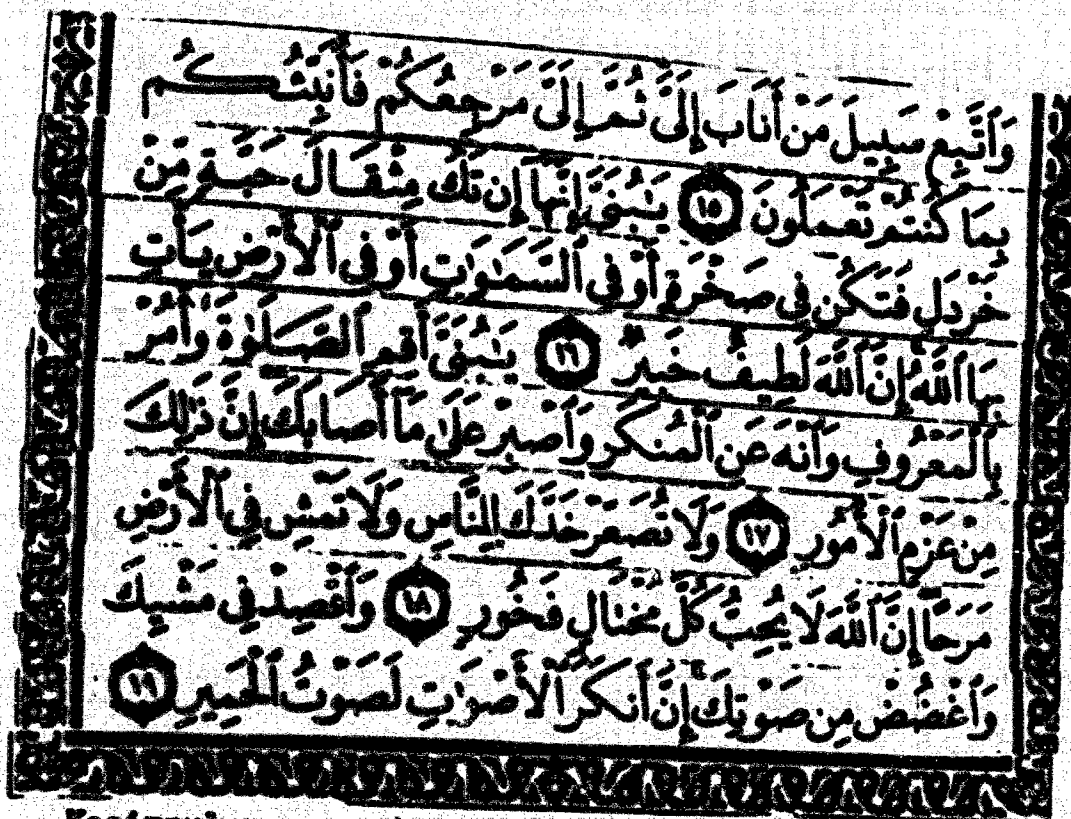 وَٱتَّبِعْ سَبِيلَ مَنْ أَنَابَ إِلَىَّ ثُمَّ إِلَىَّ مَرْجِعُكُمْ فَأُنَبِّئُكُم
بِمَا كُنتُمْ تَعْمَلُونَ ١٥ يَٰبُنَىَّ إِنَّهَآ إِن تَكُ مِثْقَالَ حَبَّةٍ مِّنْ
خَرْدَلٍ فَتَكُن فِى صَخْرَةٍ أَوْ فِى ٱلسَّمَٰوَٰتِ أَوْ فِى ٱلْأَرْضِ يَأْتِ
بِهَا ٱللَّهُ إِنَّ ٱللَّهَ لَطِيفٌ خَبِيرٌ ١٦ يَٰبُنَىَّ أَقِمِ ٱلصَّلَوٰةَ وَأْمُرْ
بِٱلْمَعْرُوفِ وَٱنْهَ عَنِ ٱلْمُنكَرِ وَٱصْبِرْ عَلَىٰ مَآ أَصَابَكَ إِنَّ ذَٰلِكَ
مِنْ عَزْمِ ٱلْأُمُورِ ١٧ وَلَا تُصَعِّرْ خَدَّكَ لِلنَّاسِ وَلَا تَمْشِ فِى ٱلْأَرْضِ
مَرَحًا إِنَّ ٱللَّهَ لَا يُحِبُّ كُلَّ مُخْتَالٍ فَخُورٍ ١٨ وَٱقْصِدْ فِى مَشْيِكَ
وَٱغْضُضْ مِن صَوْتِكَ إِنَّ أَنكَرَ ٱلْأَصْوَٰتِ لَصَوْتُ ٱلْحَمِيرِ ١٩